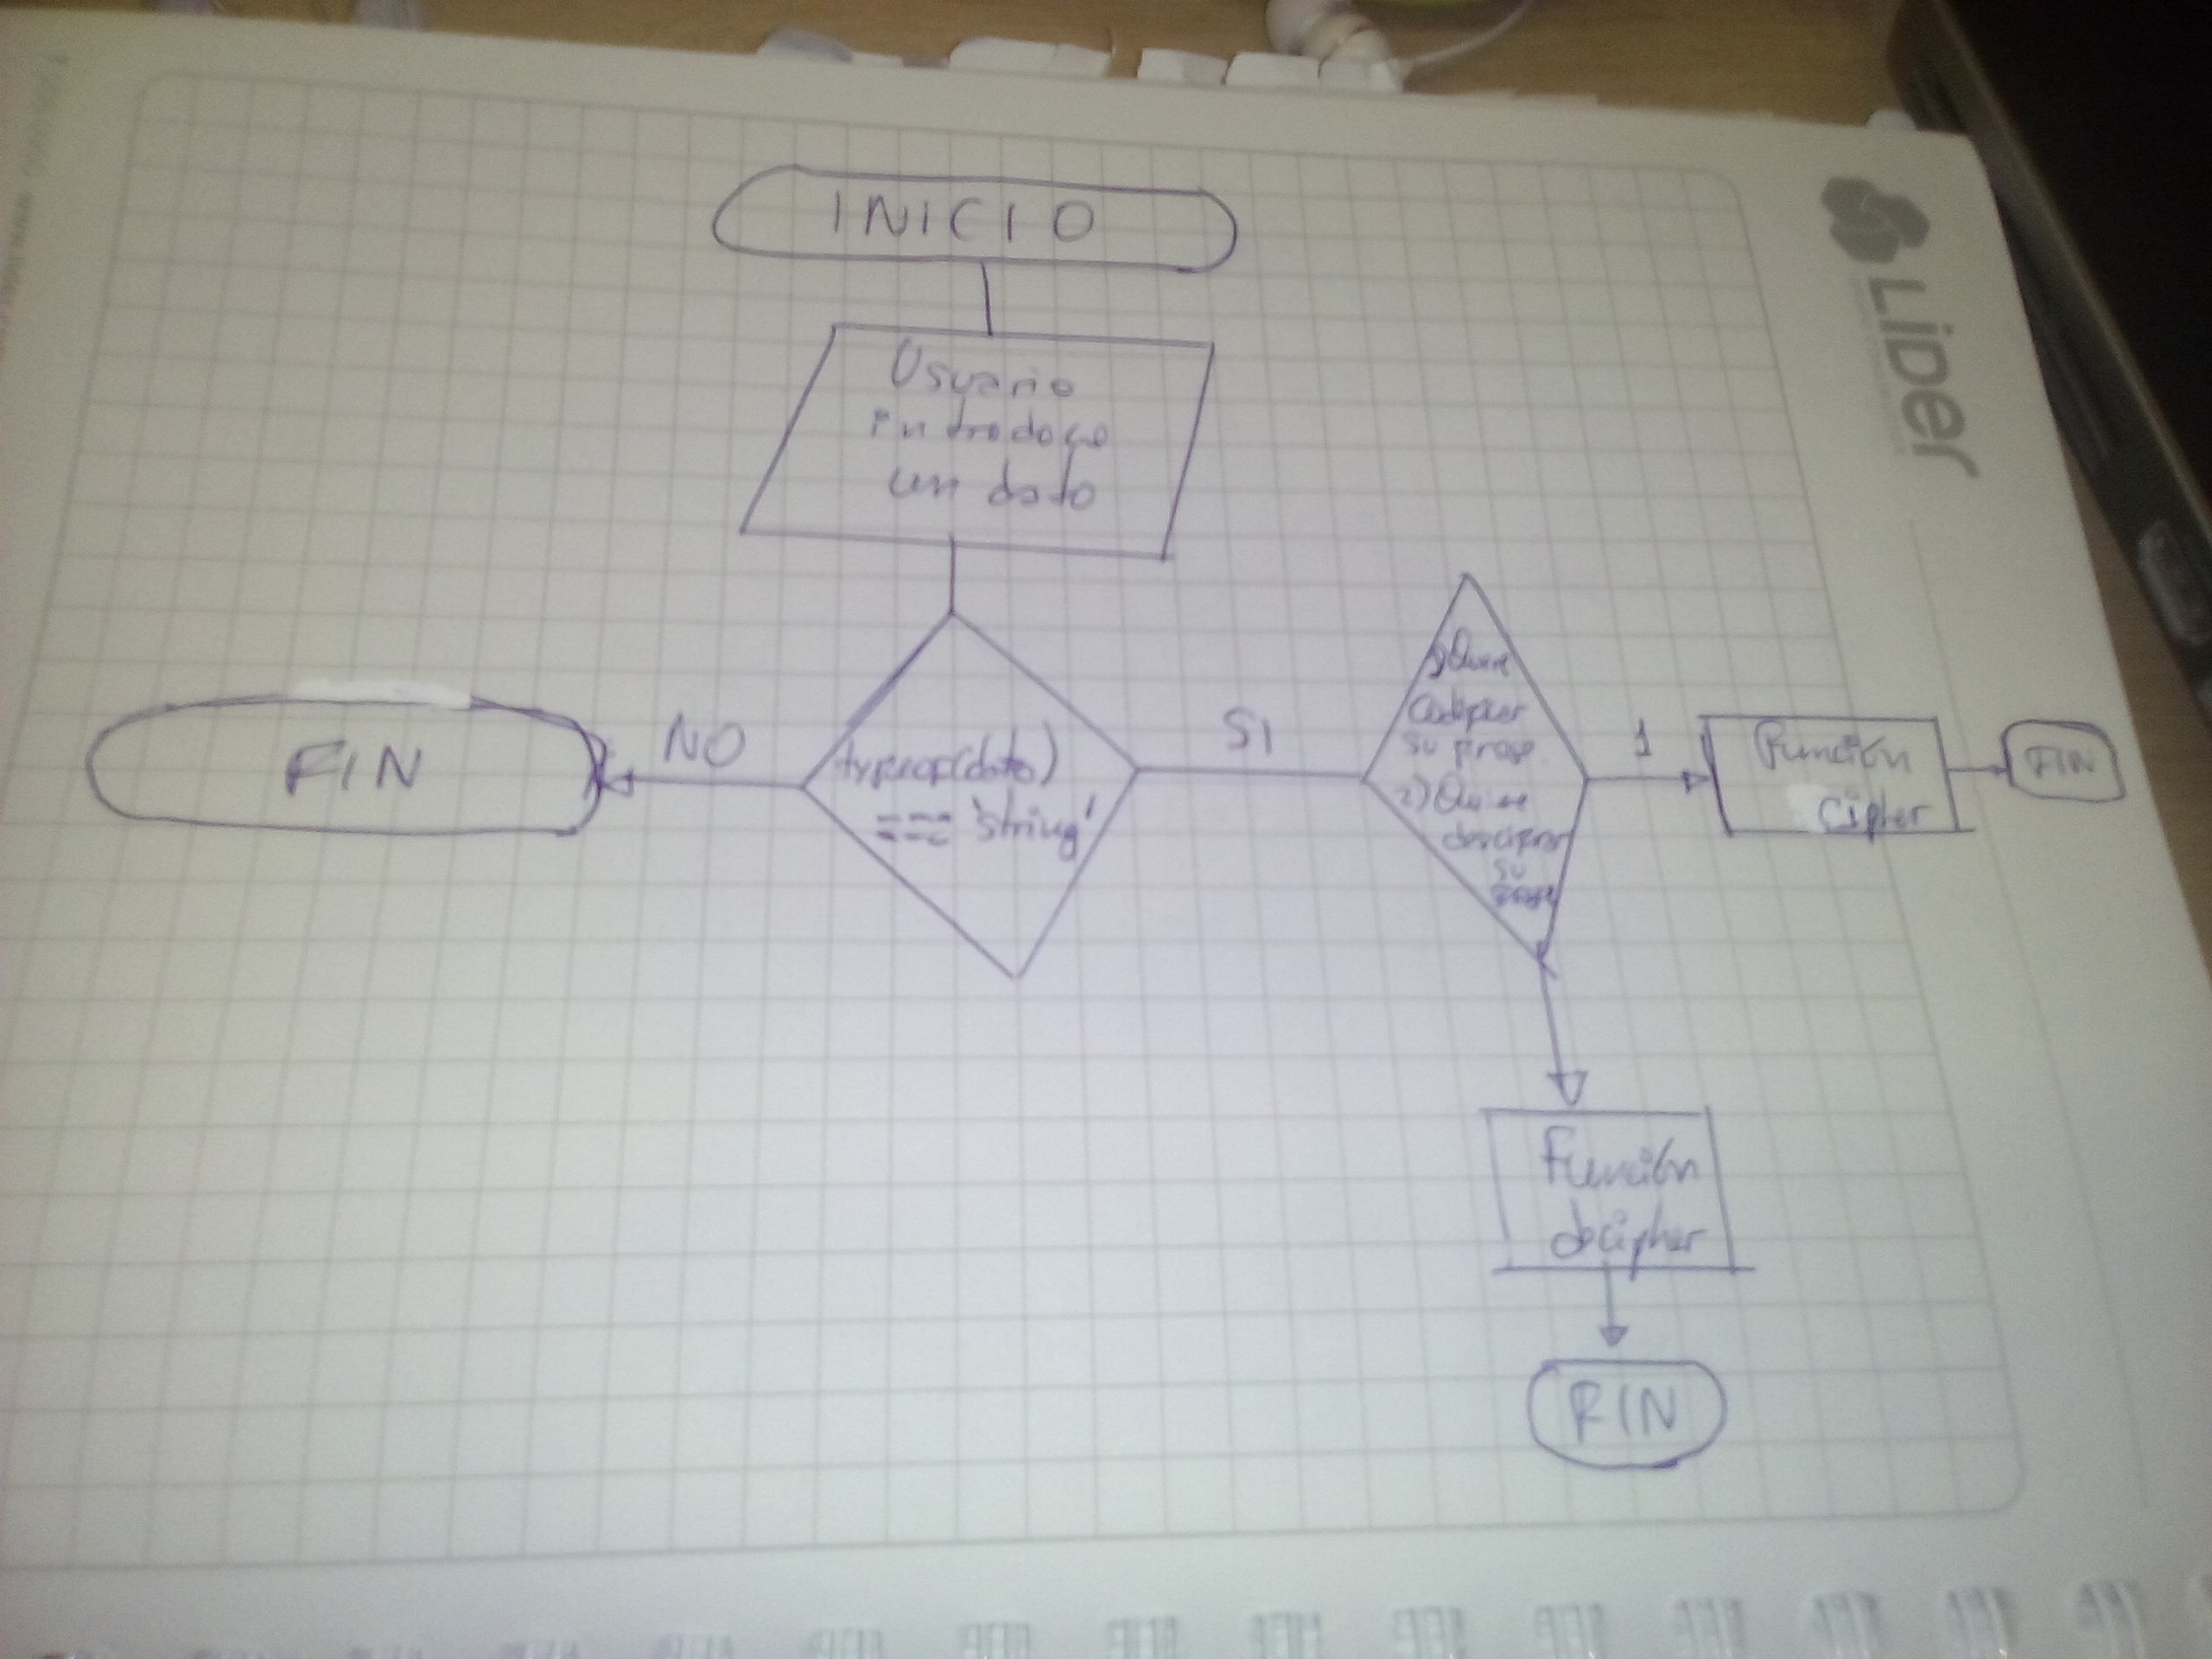 INICIO
Usuario
introdogo
un dato
typeof(dato)
=== 'string'
NO
FIN
SI
1) Quiere
su frase
2) Quiere
su
frase
1
Función
Cipher
FIN
Función
decipher
FIN
LIDER